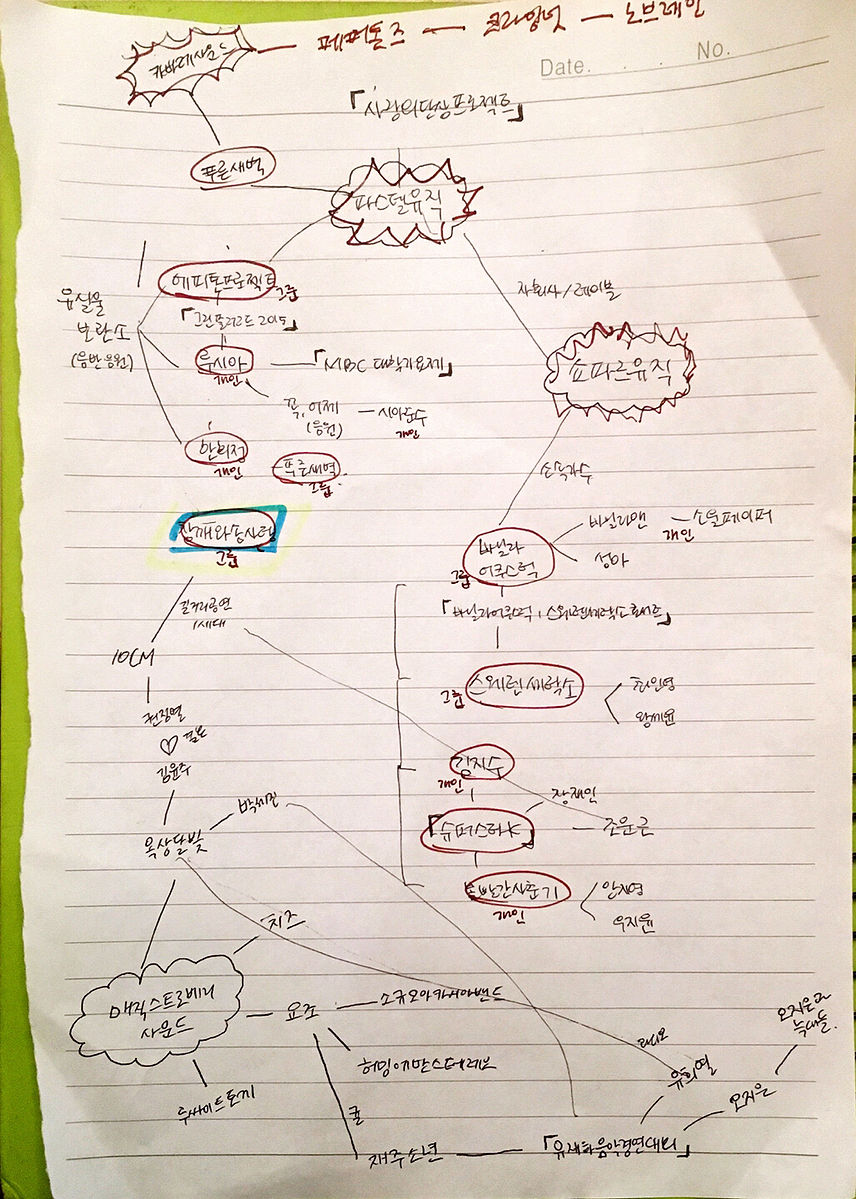 카바레사운드 — 페퍼톤즈 — 크라잉넛 — 노브레인
Date. . . No.
「사랑의단상프로젝트」
푸른새벽
파스텔뮤직
에피톤프로젝트
그룹
자회사/레이블
유실물
보관소
(음반 응원)
「그린플러그드 2015」
루시아
개인
「MBC 대학가요제」
쇼파르뮤직
꼭, 어제
(응원)
시아준수
개인
한희정
개인
푸른새벽
그룹
소속가수
참깨와솜사탕
그룹
바닐라
어쿠스틱
그룹
바닐라맨
개인
소울페이퍼
성아
길거리공연
1세대
「바닐라어쿠스틱, 스웨덴세탁소 콘서트」
10CM
스웨덴세탁소
그룹
최인영
왕세윤
권정열
♡ 결혼
김윤주
김지수
개인
박세진
장재인
「슈퍼스타K」
조문근
옥상달빛
볼빨간사춘기
개인
안지영
우지윤
치즈
매직스트로베리
사운드
요조
소규모아카시아밴드
오지은과
늑대들
라디오
허밍어반스테레오
유희열
루싸이트토끼
오지은
귤
재주소년
「유재하음악경연대회」